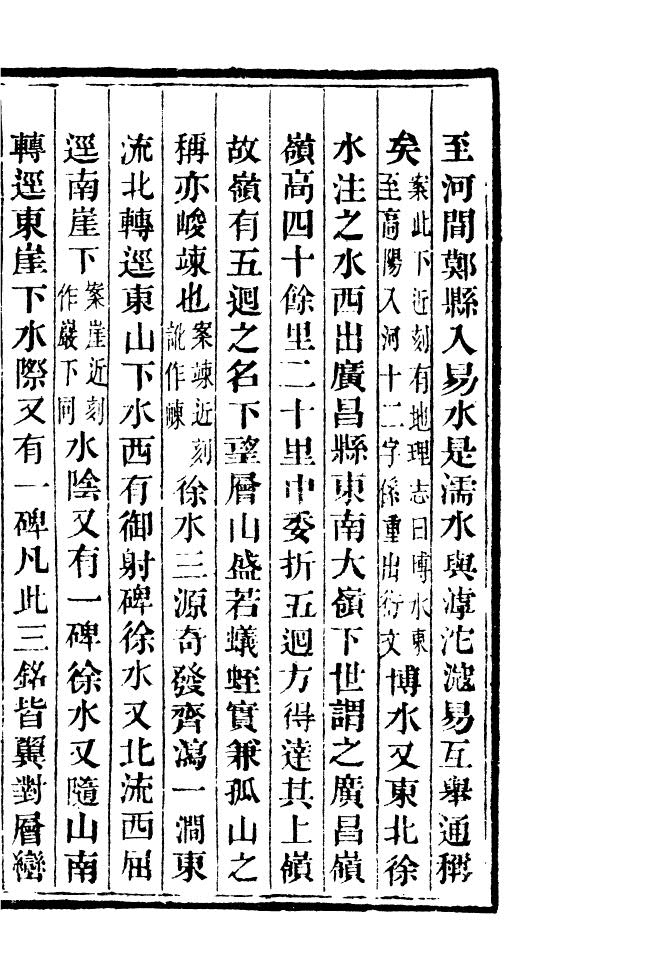 至河間鄭縣入易水是濡水與滹沱滱易互舉通稱
矣案此下近刻有地理志曰博水東至高陽入河十二字係重出衍文博水又東北徐
水注之水西出廣昌縣東南大嶺下世謂之廣昌嶺
嶺高四十餘里二十里中委折五迴方得達其上嶺
故嶺有五迴之名下望層山盛若蟻蛭實兼孤山之
稱亦峻竦也案竦近刻訛作㟳徐水三源奇發齊瀉一澗東
流北轉逕東山下水西有御射碑徐水又北流西屈
逕南崖下案崖近刻作巖下同水陰又有一碑徐水又隨山南
轉逕東崖下水際又有一碑凡此三銘皆翼對層巒